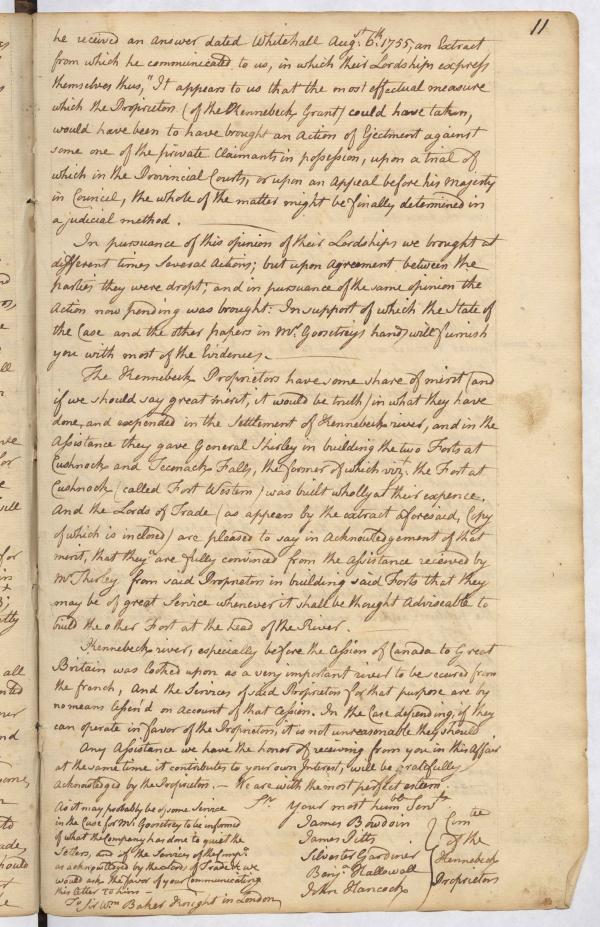 11
he received an answer dated Whitehall Augst. 6th. 1755, an Extract
from which he communicated to us, in which their Lordships express
themselves thus, "It appears to us that the most effectual measure
which the Proprietors (of the Kennebeck Grant) could have taken,
would have been to have brought an Action of Ejectment against
some one of the private Claimants in possession, upon a trial of
which in the Provincial Courts, or upon an Appeal before his Majesty
in Council, the whole of the matter might be finally determined in
a judicial method.
In pursuance of this opinion of their Lordships we brought at
different times several Actions; but upon Agreement between the
parties they were dropt; and in pursuance of the same opinion the
Action now pending was brought: In support of which the State of
the Case and the other papers in Mr. Goostreys hands will furnish
you with most of the Evidences.
The Kennebeck Proprietors have some share of merit (and
if we should say great merit, it would be truth) in what they have
done, and expended in the Settlement of Kennebeck river, and in the
Assistance they gave General Shirley in building the two Forts at
Cushnock and Teconack Falls, the former of which vizt. the Fort at
Cushnock (called Fort Western) was built wholly at their expence.
And the Lords of Trade (as appears by the extract aforesaid, Copy
of which is inclosed) are pleased to say in Acknowledgement of that
merit, that they "are fully convinced from the assistance received by
Mr. Shirley from said Proprietors in building said Forts that they
may be of great Service whenever it shall be thought Adviseable to
build the other Fort at the head of the River.
Kennebeck river, especially before the Cession of Canada to Great
Britain was looked upon as a very important river to be secured from
the french, And the Services of said Proprietors for that purpose are by
no means lessen'd on account of that Cession. In the Case depending, if they
can operate in favor of the Proprietors, it is not unreasonable they should
Any Assistance we have the honor of receiving from you in this Affair
at the same time it contributes to your own Interest, will be gratefully
Acknowledged by the Proprietors. — We are with the most perfect esteem.
Sr. Your most humble Servts.
As it may probably be of some Service
in the Case for Mr. Goostrey to be informed
of what the Company has done to quiet the
Setlers, and of the Services of the Compy.
as acknowledged by the Lords of Trade, we
would ask the favor of your Communicating
this letter to him —
To Sir Wm. Baker Knight in London
James Bowdoin
James Pitts
Silvester Gardiner
Benj. Hallowell
John Hancock
Comtee
of the
Kennebeck
Proprietors